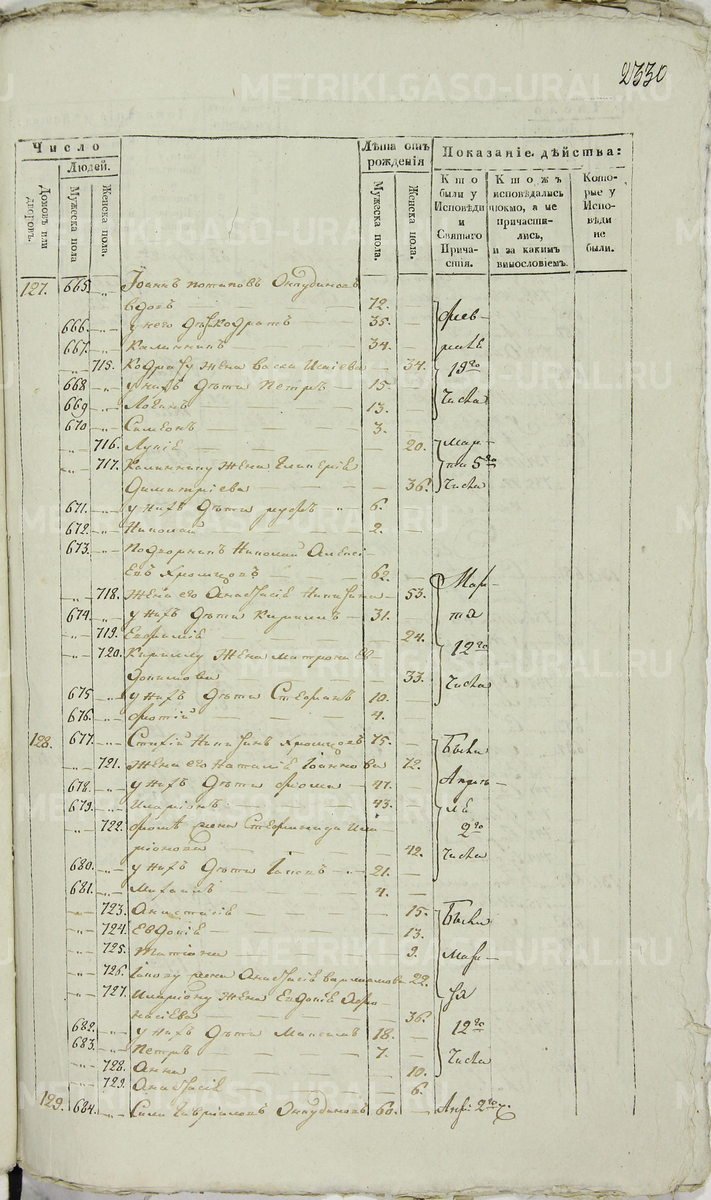 2330
Число
Людей.
Домовъ или дворовъ.
Мужеска пола
Женска пола.
Лѣта отъ рожденія
Мужеска пола.
Женска пола.
Показаніе дѣйства:
Кто были у Исповѣди и Святаго Причастія.
Кто жъ исповѣдались токмо, а не причастились, и за какимъ винословіемъ.
Которые у Исповѣди не были.
127. 665. Іоаннъ Потаповъ Онкудиновъ
вдовъ 72.
666. у него дѣти Кодратъ 35.
667. Калинникъ 34.
715. Кодрату жена Васса Исаіева 34.
668. у нихъ дѣти Петръ 15.
669. Логинъ 13.
670. Симеонъ 3.
716. 20.
717. Калиннику жена Гликерія
Димитріева 36.
671. у нихъ дѣти 6.
672. Николай 2.
673. Подворникъ Николай Алексі
евъ Хромцовъ 62.
718. жена его Анастасія Никитина 53.
674. у нихъ дѣти Кириллъ 31.
719. Евфимія 24.
720. Кириллу жена Матрона Ев
докимова 33.
675. у нихъ дѣти Стефанъ 10.
676. Фотій 4.
128. 677. Никитинъ Хромцовъ 75.
721. жена его Наталія Іоаннова 72.
678. у нихъ дѣти Фома 47.
679. Иларіонъ 43.
722. Фомѣ жена Стефанида Ила
ріонова 42.
680. у нихъ дѣти Іаковъ 21.
681. Михаилъ 4.
723. Анастасія 15.
724. Евдокія 13.
725. Матрона 9.
726. Іакову жена Анастасія Варламова 22.
727. Иларіону жена Евдокія Афа
насіева 36.
682. у нихъ дѣти Максимъ 18.
683. Петръ 7.
728. Анна 10.
729. Анастасія 6.
129. 684. Сила Гавріиловъ Онкудиновъ 60.
Фев
раля
19го
Числа
Мар
та 5го
Числа
Мар
та
12го
Числа
Были
Апрѣ
ля
2го
Числа
Были
Мар
та
12го
Числа
Апр: 2го
METRIKI.GASO-URAL.RU